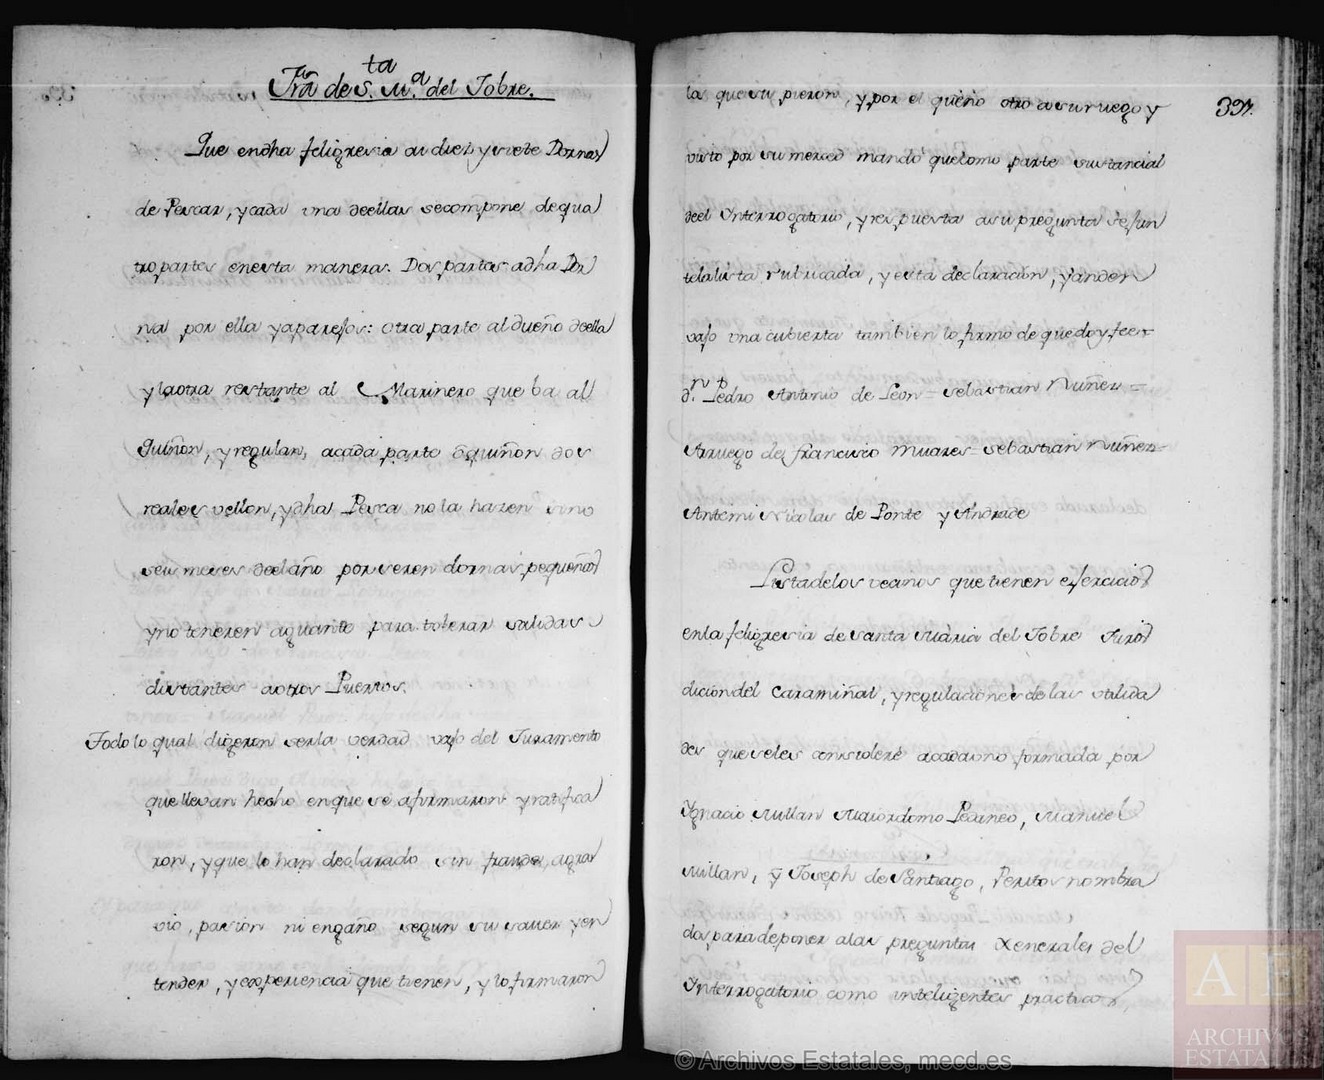 Frã de S.ta M.a del Jobre.
Que endha feligresia ai diez y siete Dornas
de Pescar, y cada una deellas secompone de qua
tro partes enesta manera. Dos partes adha Dor
na por ella yaparejos: otra parte al dueño deella
y laotra restante al Marinero que ba al
Quiñon, y regulan, acada parte o quiñon dos
reales vellon, ydhal Pesca no la hazen sino
seis meses deelaño por seren dornas pequeñas
yno teneren aguante para tolerar salidas
distantes aotros Puertos.
Todo lo qual digeron serla verdad vajo del Juramento
que llevan hecho enque se afirmaron y ratifica
ron, y que lo han declarado sin fraude, agra
vio, pasion ni engaño segun su saver y en
tender, y experiencia que tienen, y lo firmaron
397.
los que supieron, y por el queno otro asu ruego y
visto por su merced mandó quecomo parte sustancial
deel Interrogatorio, y respuesta asu pregunta se jun
telalista rubricada, y esta declaracion, y anden
vajo una cubierta tambien lo firmo de quedoy fee=
d.n Pedro Antonio de Leon= Sebastian Nuñez=
Arruego de francisco Muares= Sebastian Nuñez=
Antemi Nicolas de Ponte y Andrade
Listadelos vecinos que tienen efercicio
enla feligresia de Santa Maria del Jobre Juris
dicion del Caramiñal, y regulaciones de las utilida
des queseles considere acadauno formada por
Ygnacio Millan Maiordomo Pedaneo, Manuel
Millan, y Joseph de Santiago, Peritos nombra
dos para deponer alas preguntas Xenerales del
Interrogatorio como inteligentes practicos
© Archivos Estatales, mecd.es
AE
ARCHIVOS
ESTATA